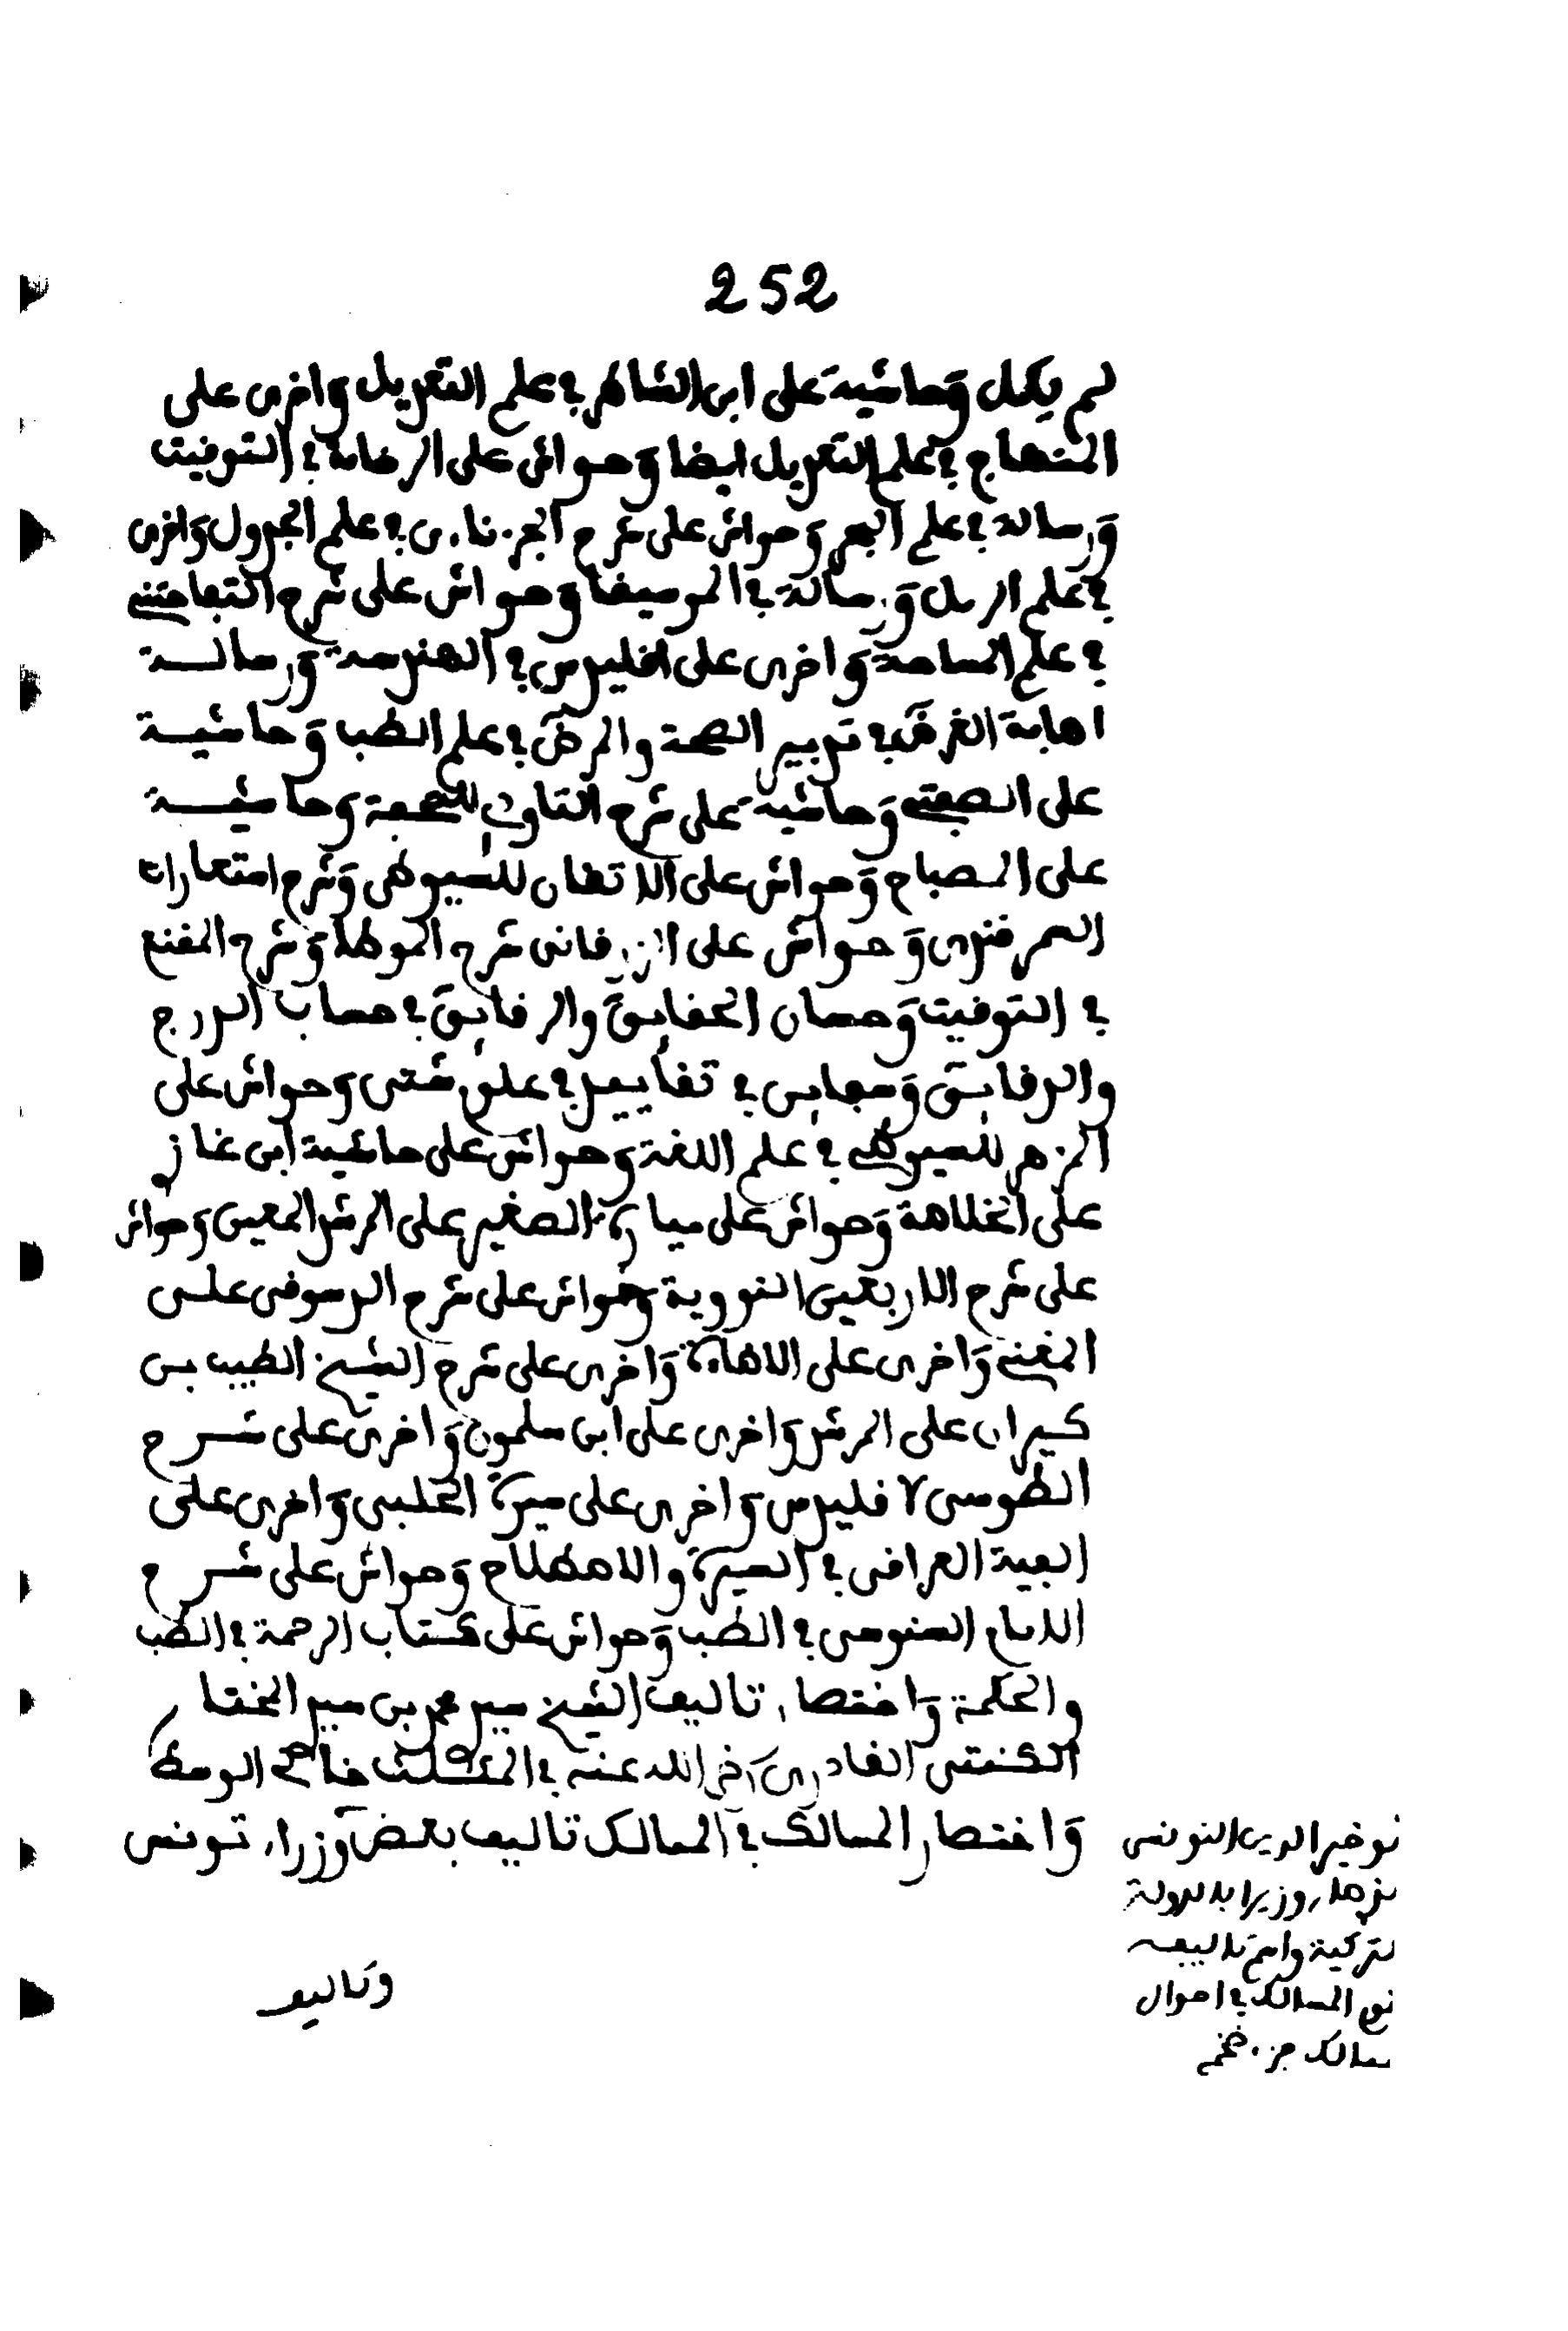 252
لم يكمل وحاشية على ابن الشاطر في علم التعديل واخرى على
المنهاج في علم التعديل ايضا وحواش على الرخامة في التوقيت
ورسالة في علم الجفر وحواش على شرح الجزناءى في علم الجدول واخرى
في علم الرمل ورسالة في الموسيقا وحواش على شرح
في علم المساحة واخرى على اقليدس في الهندسة ورسالة
اصابة الغرض في تدبير الصحة والمرض في علم الطب وحاشية
على الصفتى وحاشية على شرح التاودى للتحفة وحاشية
على المصباح وحواش على الاتقان للسيوطى وشرح استعارات
السمرقندى وحواش على الزرقانى شرح الموطا وشرح المقنع
في التوقيت وحسان الحقايق والرقايق في حساب الدرج
والدقايق ومجابى في تقاييد في علوم شتى وحواش على
المزهر للسيوطى في علم اللغة وحواش على حاشية ابن غاز
على الخلاصة وحواش على ميارة الصغير على المرشد المعين وحواش
على شرح الاربعين النووية وحواش على شرح الدسوقى على
المغنى واخرى على الاصابة واخرى على شرح الشيخ الطيب بن
كيران على المرشد واخرى على ابن سلمون واخرى على شرح
الطوسى لاقليدس واخرى على سيرة الحلبى واخرى على
الفية العراقى في السيرة والاصطلاح وحواش على شرح
الامام السنوسى في الطب وحواش على كتاب الرحمة في الطب
والحكمة واختصار تاليف الشيخ سيد محمد بن سيد المختار
الكنتى القادرى رضى الله عنه في المثلث خالى الوسط
واختصار المسالك في الممالك تاليف بعض وزراء تونس
وتاليف
نو خير الدين التونسى
وزيرا بالدولة
تركية واسم تاليفه
المسالك في احوال
ممالك جزء ضخم